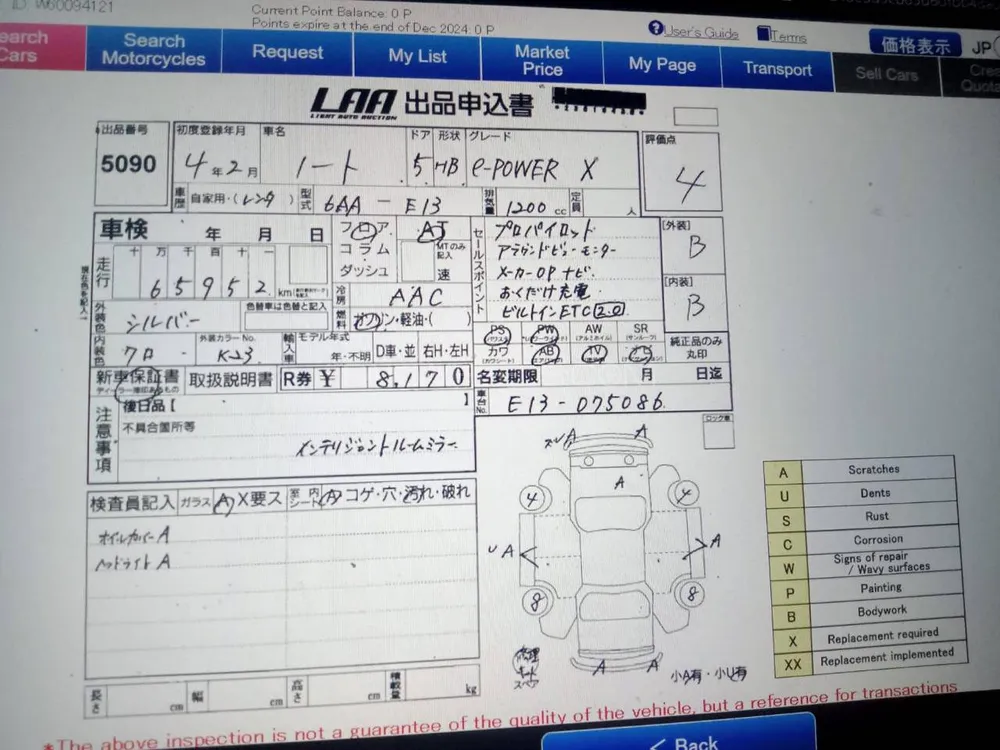 ID: W60094121
Current Point Balance: 0 P
Points expire at the end of Dec 2024: 0 P
User's Guide
Terms
価格表示
JP
earch
Cars
Search
Motorcycles
Request
My List
Market
Price
My Page
Transport
Sell Cars
LAA 出品申込書
LIGHT AUTO AUCTION
出品番号
5090
初度登録年月
4年2月
車名
ノート
ドア
5
形状
HB
グレード
e-POWER X
評価点
4
車歴
自家用・(レンタ)
型式
6AA - E13
排気量
1200 cc
定員
人
車検
年 月 日
フロア
コラム
ダッシュ
AT
MTのみ記入
速
セールスポイント
プロパイロット
アラウンドビューモニター
メーカーOPナビ
おくだけ充電
ビルトインETC 2.0
[外装]
B
[内装]
B
走行
十 万 千 百 十 一
65952 km
冷房
AAC
燃料
ガソリン・軽油・( )
外装色
シルバー
色替車は色替と記入
内装色
クロ
外装カラーNo.
K23
輸入車
モデル年式
年・不明
D車・並
右H・左H
PS
PW
AW
(アルミホイル)
SR
(サンルーフ)
カワ
(カワシート)
AB
TV
ナビ
純正品のみ
丸印
新車保証書
取扱説明書
R券 ¥ 8,170
名変期限
月
日迄
車台No.
E13-075086
注意事項
後日品【 】
不具合箇所等
インテリジェントルームミラー
検査員記入
ガラス A X要ス
室内シート A コゲ・穴・汚れ・破れ
オイルカバーA
ヘッドライトA
A
A
A
4
4
U A
A
8
8
A
A
小A有・小U有
長さ
cm
幅
cm
高さ
cm
積載量
kg
A Scratches
U Dents
S Rust
C Corrosion
W Signs of repair
/ Wavy surfaces
P Painting
B Bodywork
X Replacement required
XX Replacement implemented
*The above inspection is not a guarantee of the quality of the vehicle, but a reference for transactions
< Back